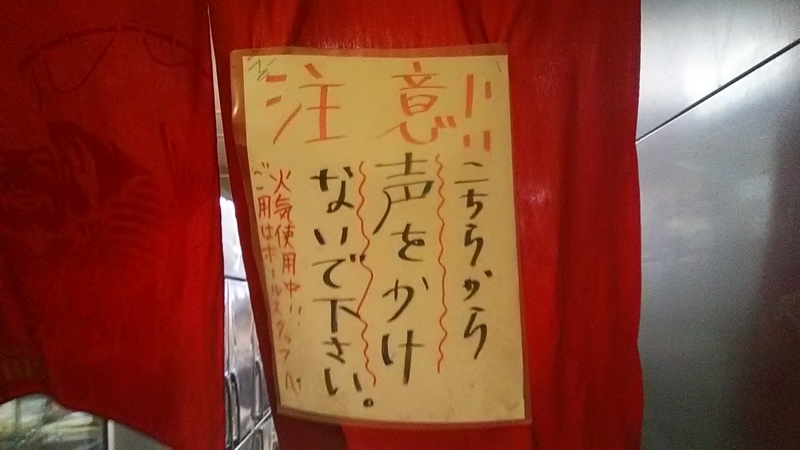 注意!!
こちらから
声をかけ
ないで下さい。
火気使用中!!
ご用はホールスタッフへ